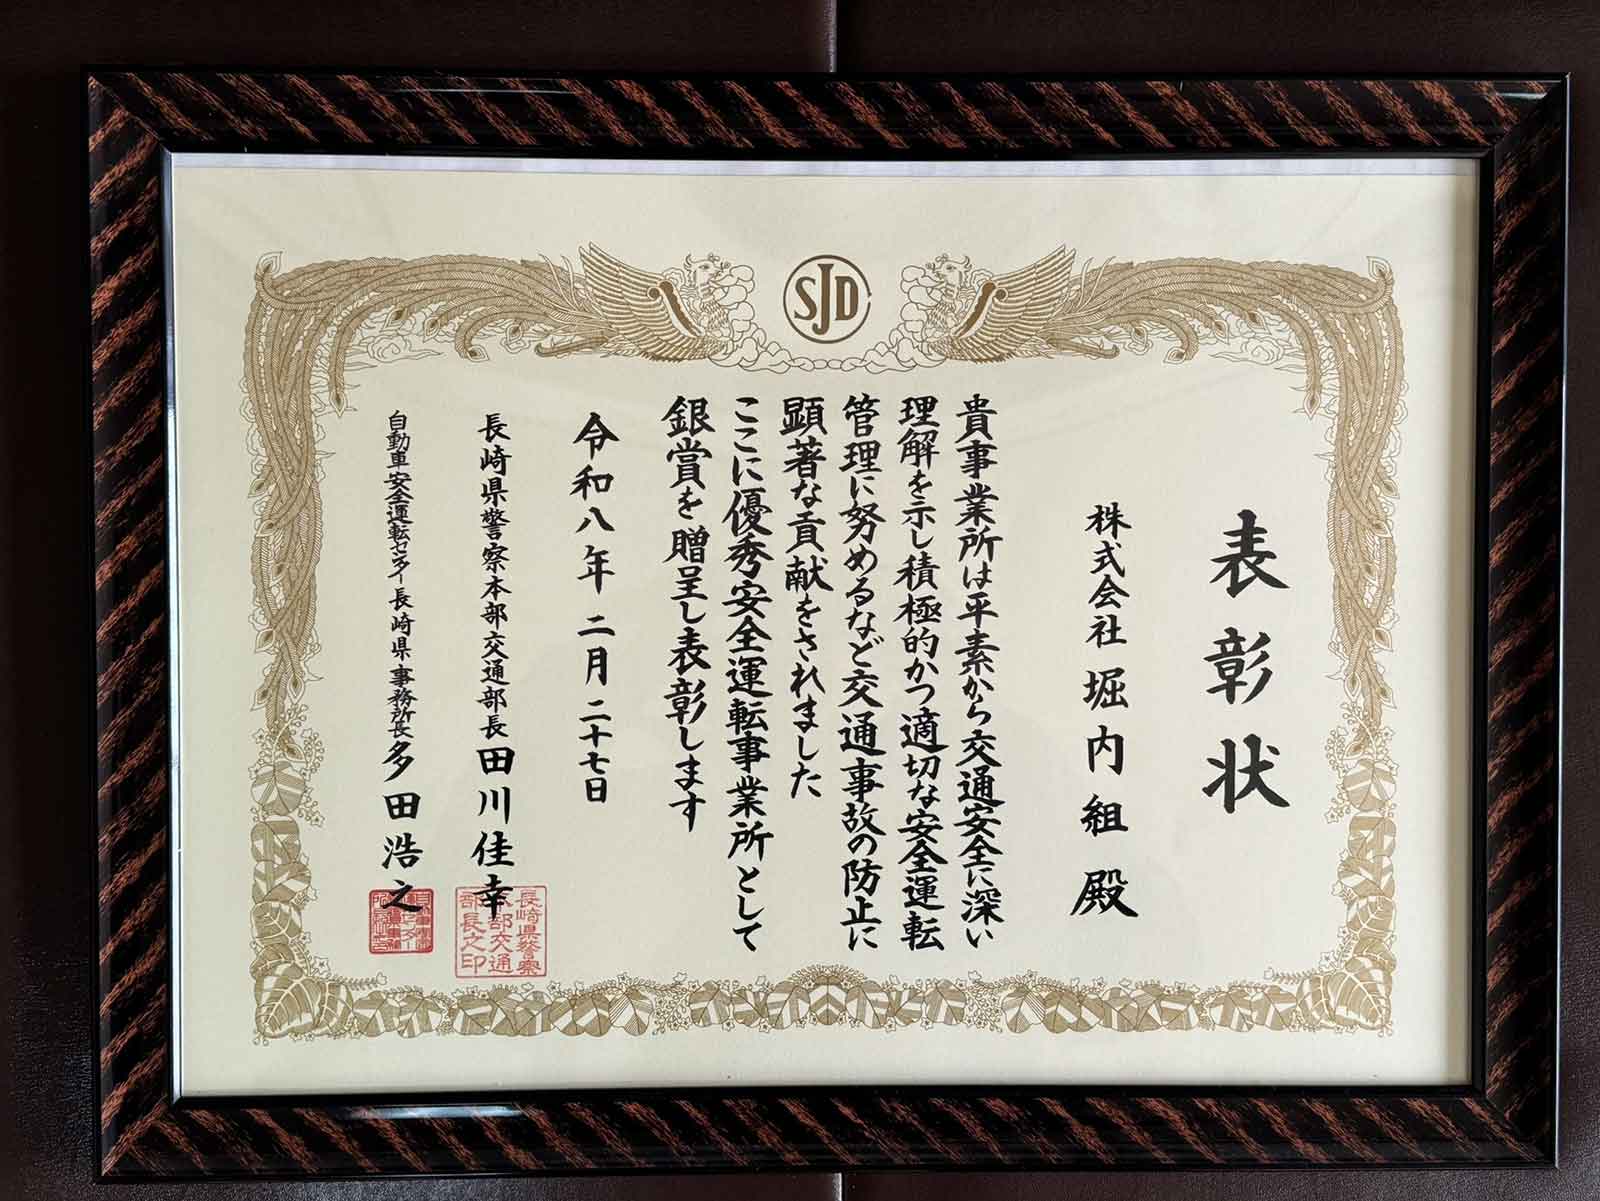 SJD
表彰状
株式会社 堀内組 殿
貴事業所は平素から交通安全に深い
理解を示し積極的かつ適切な安全運転
管理に努めるなど交通事故の防止に
顕著な貢献をされました
ここに優秀安全運転事業所として
銀賞を贈呈し表彰します
令和八年 二月 二十七日
長崎県警察本部交通部長 田川佳幸
長崎県警察
本部交通
部長之印
自動車安全運転センター長崎県事務所長 多田浩之